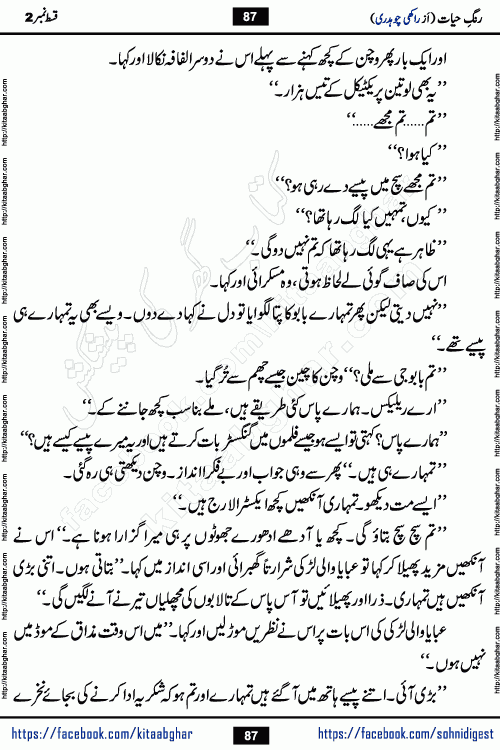 رنگِ حیات (از راکھی چوہدری)
87
قسط نمبر 2
اور ایک بار پھر وچن کے کچھ کہنے سے پہلے اس نے دوسرا لفافہ نکالا اور کہا۔
’’یہ بھی لو تین پریکٹیکل کے تیس ہزار۔‘‘
’’تم......تم مجھے......‘‘
’’کیا ہوا؟‘‘
’’تم مجھے سچ میں پیسے دے رہی ہو؟‘‘
’’کیوں، تمہیں کیا لگ رہا تھا؟‘‘
’’ظاہر ہے یہی لگ رہا تھا کہ تم نہیں دو گی۔‘‘
اس کی صاف گوئی بے لحاظ ہوتی، وہ مسکرائی اور کہا۔
’’نہیں دیتی لیکن پھر تمہارے بابو کا پتا لگوایا تو دل نے کہا دے دوں۔ ویسے بھی یہ تمہارے ہی
پیسے تھے۔‘‘
’’تم بابو جی سے ملی؟‘‘ وچن کا چین جیسے چھم سے خُر گیا۔
’’ارے ریلیکس۔ ہمارے پاس کئی طریقے ہیں، ملے بنا سب کچھ جاننے کے۔‘‘
’’ہمارے پاس؟ کہتی تو ایسے ہو جیسے فلموں میں گنگسٹر بات کرتے ہیں اور یہ میرے پیسے کیسے ہیں؟‘‘
’’تمہارے ہی ہیں۔‘‘ پھر سے وہی جواب اور بے فکرا انداز۔ وچن دیکھتی ہی رہ گئی۔
’’ایسے مت دیکھو۔ تمہاری آنکھیں کچھ ایکسٹرا لارج ہیں۔‘‘
’’تم سچ سچ بتاؤ گی۔ کچھ یا آدھے ادھورے جھوٹوں پر ہی میرا گزارا ہونا ہے۔‘‘ اس نے
آنکھیں مزید پھیلا کر کہا تو عبایا والی لڑکی شرارتاً گھبرائی اور اسی انداز میں کہا۔ ’’بتاتی ہوں۔ اتنی بڑی
آنکھیں ہیں تمہاری۔ ذرا اور پھیلائیں تو آس پاس کے تالابوں کی مچھلیاں تیرنے آنے لگیں گی۔‘‘
عبایا والی لڑکی کی اس بات پر اس نے نظریں موڑ لیں اور کہا۔ ’’میں اس وقت مذاق کے موڈ میں
نہیں ہوں۔‘‘
’’بڑی آئی۔ اتنے پیسے ہاتھ میں آ گئے ہیں تمہارے اور تم ہو کہ شکریہ ادا کرنے کی بجائے نخرے
https://facebook.com/kitaabghar
87
https://facebook.com/sohnidigest
http://kitaabghar.com
http://kitaabghar.com
http://kitaabghar.com
http://kitaabghar.com
http://kitaabghar.com
http://kitaabghar.com
http://kitaabghar.com
http://kitaabghar.com
http://kitaabghar.com
http://kitaabghar.com
http://kitaabghar.com
http://kitaabghar.com
http://kitaabghar.com
http://kitaabghar.com